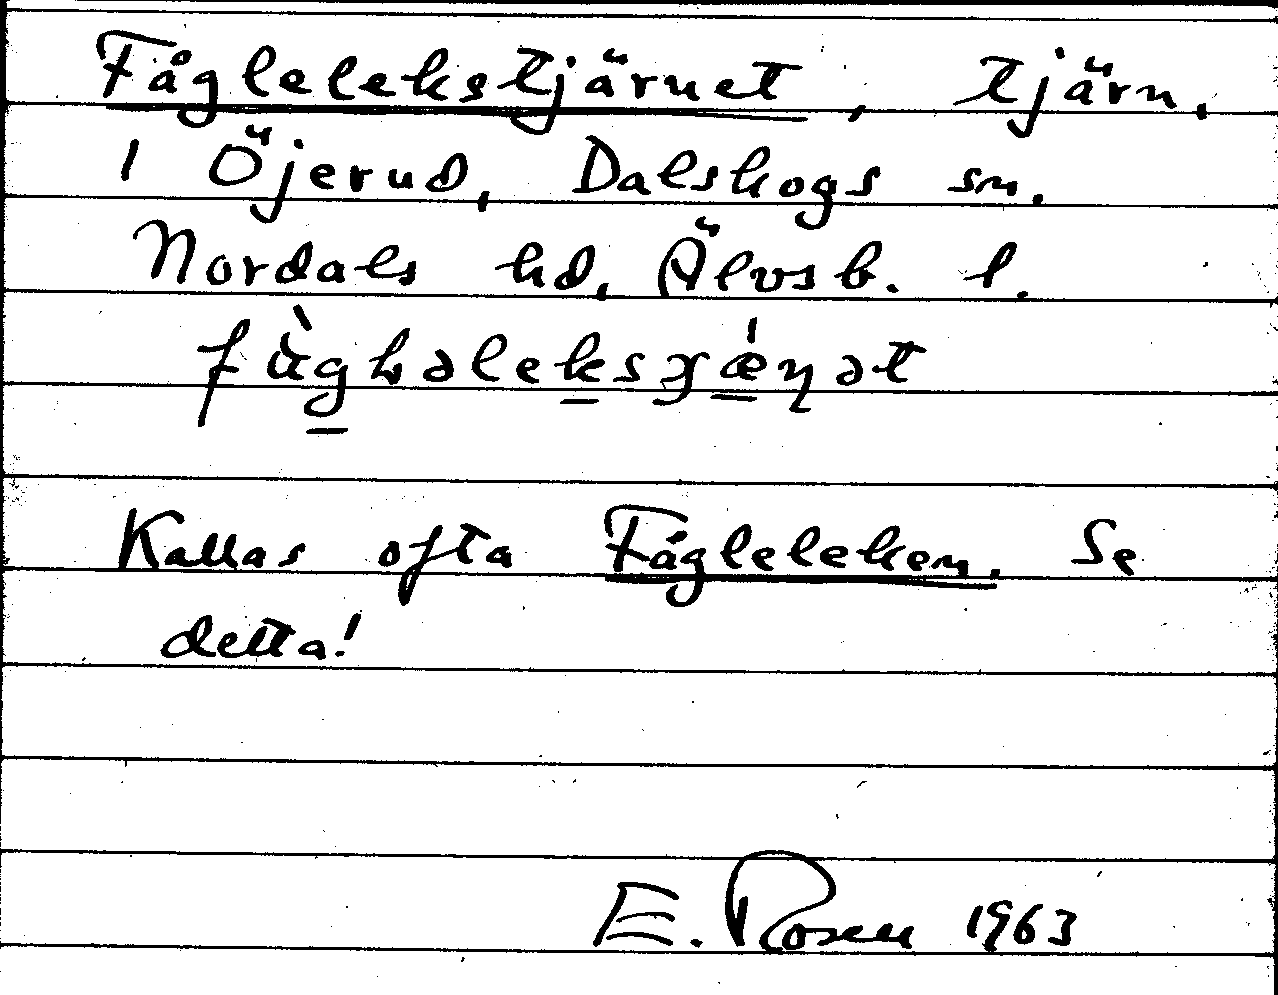 Fåglelekstjärnet, tjärn.
I Öjerud, Dalskogs sn.
Nordals hd, Älvsb. l.

Kallas ofta Fågleleken. Se
detta!
E. Rosen 1963